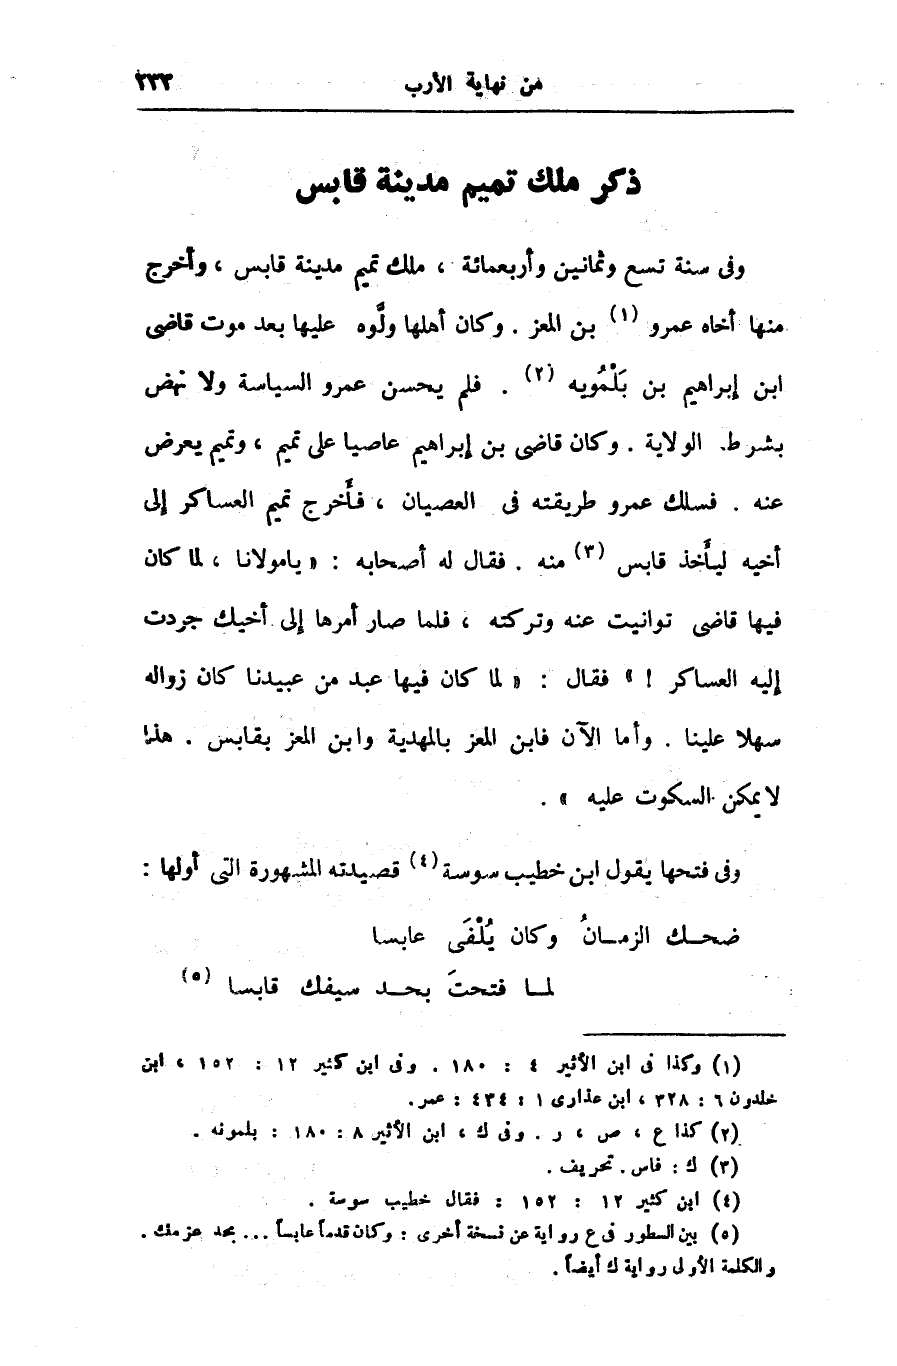 من نهاية الأرب ٢٣٣
ذكر ملك تميم مدينة قابس
وفى سنة تسع وثمانين وأربعمائة ، ملك تميم مدينة قابس ، وأخرج
منها أخاه عمرو (١) بن المعز . وكان أهلها ولَّوه عليها بعد موت قاضى
ابن إبراهيم بن بَلْمُويه (٢) . فلم يحسن عمرو السياسة ولا نهض
بشرط الولاية . وكان قاضى بن إبراهيم عاصيا على تميم ، وتميم يعرض
عنه . فسلك عمرو طريقته فى العصيان ، فأَخرج تميم العساكر إلى
أخيه ليأَخذ قابس (٣) منه . فقال له أصحابه : « يامولانا ، لما كان
فيها قاضى توانيت عنه وتركته ، فلما صار أمرها إلى أخيك جردت
إليه العساكر ! » فقال : « لما كان فيها عبد من عبيدنا كان زواله
سهلا علينا . وأما الآن فابن المعز بالمهدية وابن المعز بقابس . هذا
لايمكن السكوت عليه » .
وفى فتحها يقول ابن خطيب سوسة (٤) قصيدته المشهورة التى أولها :
ضحك الزمانُ وكان يُلْفَى عابسا
لما فتحتَ بحد سيفك قابسا (٥)
(١) وكذا فى ابن الأثير ٤ : ١٨٠ . وفى ابن كثير ١٢ : ١٥٢ ، ابن
خلدون ٦ : ٣٢٨ ، ابن عذارى ١ : ٤٣٤ : عمر .
(٢) كذا ع ، ص ، ر . وفى ك ، ابن الأثير ٨ : ١٨٠ : بلمونه .
(٣) ك : فاس . تحريف .
(٤) ابن كثير ١٢ : ١٥٢ : فقال خطيب سوسة .
(٥) بين السطور فى ع رواية عن نسخة أخرى : وكان قدماً عابساً ... بحد عزمك .
والكلمة الأولى رواية ك أيضاً .